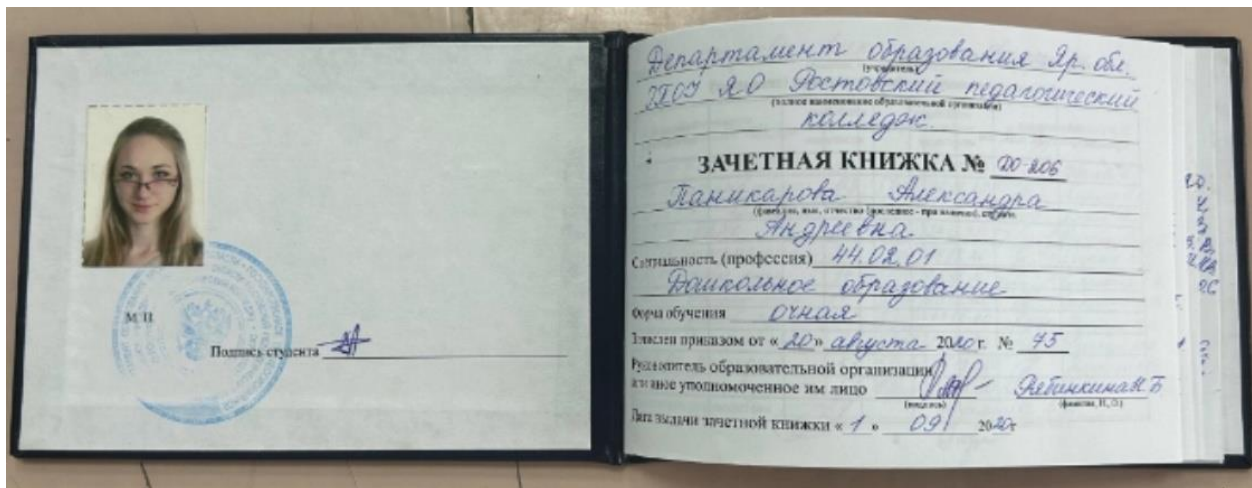 М.П.
Подпись студента
Департамент образования Яр. обл.
(учредитель)
ГПОУ ЯО Ростовский педагогический
(полное наименование образовательной организации)
колледж.
ЗАЧЕТНАЯ КНИЖКА № ДО-206
Паникарова Александра
(фамилия, имя, отчество (последнее - при наличии) студента
Андреевна
Специальность (профессия) 44.02.01
Дошкольное образование
Форма обучения очная
Зачислен приказом от « 20 » августа 2020 г. № 75
Руководитель образовательной организации
или иное уполномоченное им лицо Рябинкина Н.Б
(подпись) (фамилия, И., О.)
Дата выдачи зачетной книжки « 1 » 09 2020 г